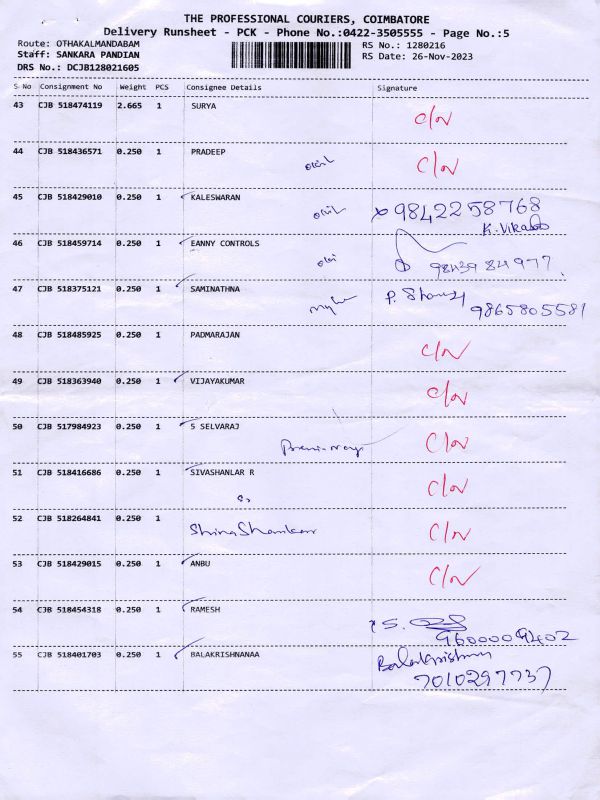 THE PROFESSIONAL COURIERS, COIMBATORE
Delivery Runsheet - PCK - Phone No.:0422-3505555 - Page No.:5
Route: OTHAKALMANDABAM RS No.: 1280216
Staff: SANKARA PANDIAN RS Date: 26-Nov-2023
DRS No.: DCJB128021605
S No Consignment No Weight PCS Consignee Details Signature
43 CJB 518474119 2.665 1 SURYA C/N
44 CJB 518436571 0.250 1 PRADEEP C/N
45 CJB 518429010 0.250 1 KALESWARAN 9842258768
46 CJB 518459714 0.250 1 EANNY CONTROLS 9843984977
47 CJB 518375121 0.250 1 SAMINATHNA 9865805581
48 CJB 518485925 0.250 1 PADMARAJAN C/N
49 CJB 518363940 0.250 1 VIJAYAKUMAR C/N
50 CJB 517984923 0.250 1 S SELVARAJ C/N
51 CJB 518416686 0.250 1 SIVASHANLAR R C/N
52 CJB 518264841 0.250 1 C/N
53 CJB 518429015 0.250 1 ANBU C/N
54 CJB 518454318 0.250 1 RAMESH
9600009402
55 CJB 518401703 0.250 1 BALAKRISHNANAA Balakrishnan
7010297737